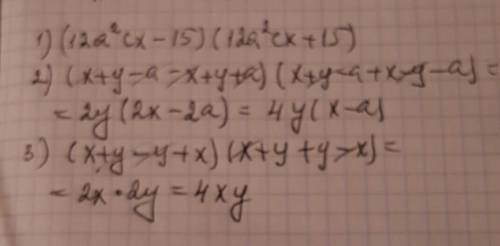 1) (12a²cx-15)(12a²cx+15)
2) (x+y-a-x+y+a)(x+y-a+x-y-a)=
=2y(2x-2a)=4y(x-a)
3) (x+y-y+x)(x+y+y-x)=
=2x·2y=4xy